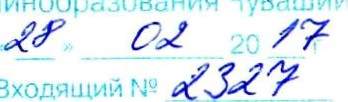 инобразования Чувашии
«28» 02 2017 г
Входящий № 2327